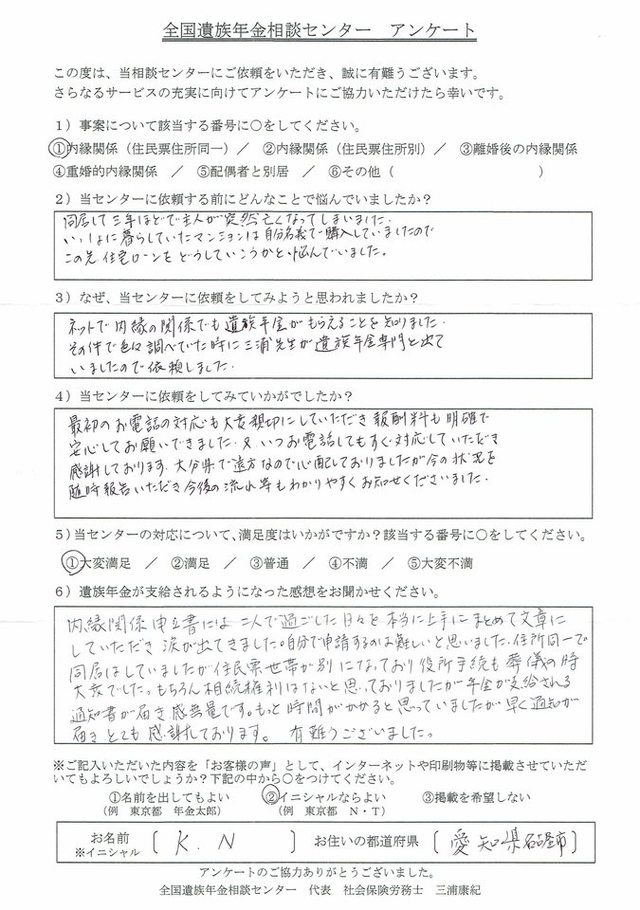 全国遺族年金相談センター　アンケート
この度は、当相談センターにご依頼をいただき、誠に有難うございます。
さらなるサービスの充実に向けてアンケートにご協力いただけたら幸いです。
1）事案について該当する番号に○をしてください。
①内縁関係（住民票住所同一）／　②内縁関係（住民票住所別）／　③離婚後の内縁関係
④重婚的内縁関係　／　⑤配偶者と別居　／　⑥その他（　　　　　　　　　　）
2）当センターに依頼する前にどんなことで悩んでいましたか？
同居して三年ほどで主人が突然亡くなってしまいました.
いっしょに暮らしていたマンションは自分名義で購入していましたので
この先 住宅ローンを どうしていこうかと悩んでいました。
3）なぜ、当センターに依頼をしてみようと思われましたか？
ネットで 内縁の関係でも遺族年金が もらえることを知りました.
その件で色々調べていた時に三浦先生が遺族年金専門と出て
いましたので依頼しました.
4）当センターに依頼をしてみていかがでしたか？
最初のお電話の対応も大変親切にしていただき報酬料も明確で
安心してお願いできました. 又 いつお電話してもすぐ対応していただき
感謝しております. 大分県で遠方なので心配しておりましたが今の状況を
随時報告いただき今後の流れ等もわかりやすくお知せくださいました.
5）当センターの対応について、満足度はいかがですか？該当する番号に○をしてください。
①大変満足　／　②満足　／　③普通　／　④不満　／　⑤大変不満
6）遺族年金が支給されるようになった感想をお聞かせください。
内縁関係申立書には二人で過ごした日々を本当に上手にまとめて文章に
していただき 涙が出てきました。自分で申請するのは難しいと思いました. 住所同一で
同居はしていましたが住民票世帯が別になっており役所手続も葬儀の時
大変でした。もちろん相続権利はないと思っておりましたが年金が支給される
通知書が届き感無量です。もっと時間がかかると思っていましたが早く通知が
届きとても感謝しております。　有難うございました。
※ご記入いただいた内容を「お客様の声」として、インターネットや印刷物等に掲載させていただ
いてもよろしいでしょうか？下記の中から○をつけてください。
①名前を出してもよい　　②イニシャルならよい　　③掲載を希望しない
（例　東京都　年金太郎）　　（例　東京都　N・T）
お名前　〔 K. N 〕　お住いの都道府県　〔 愛知県名古屋市 〕
※イニシャル
アンケートのご協力ありがとうございました。
全国遺族年金相談センター　代表　社会保険労務士　三浦康紀